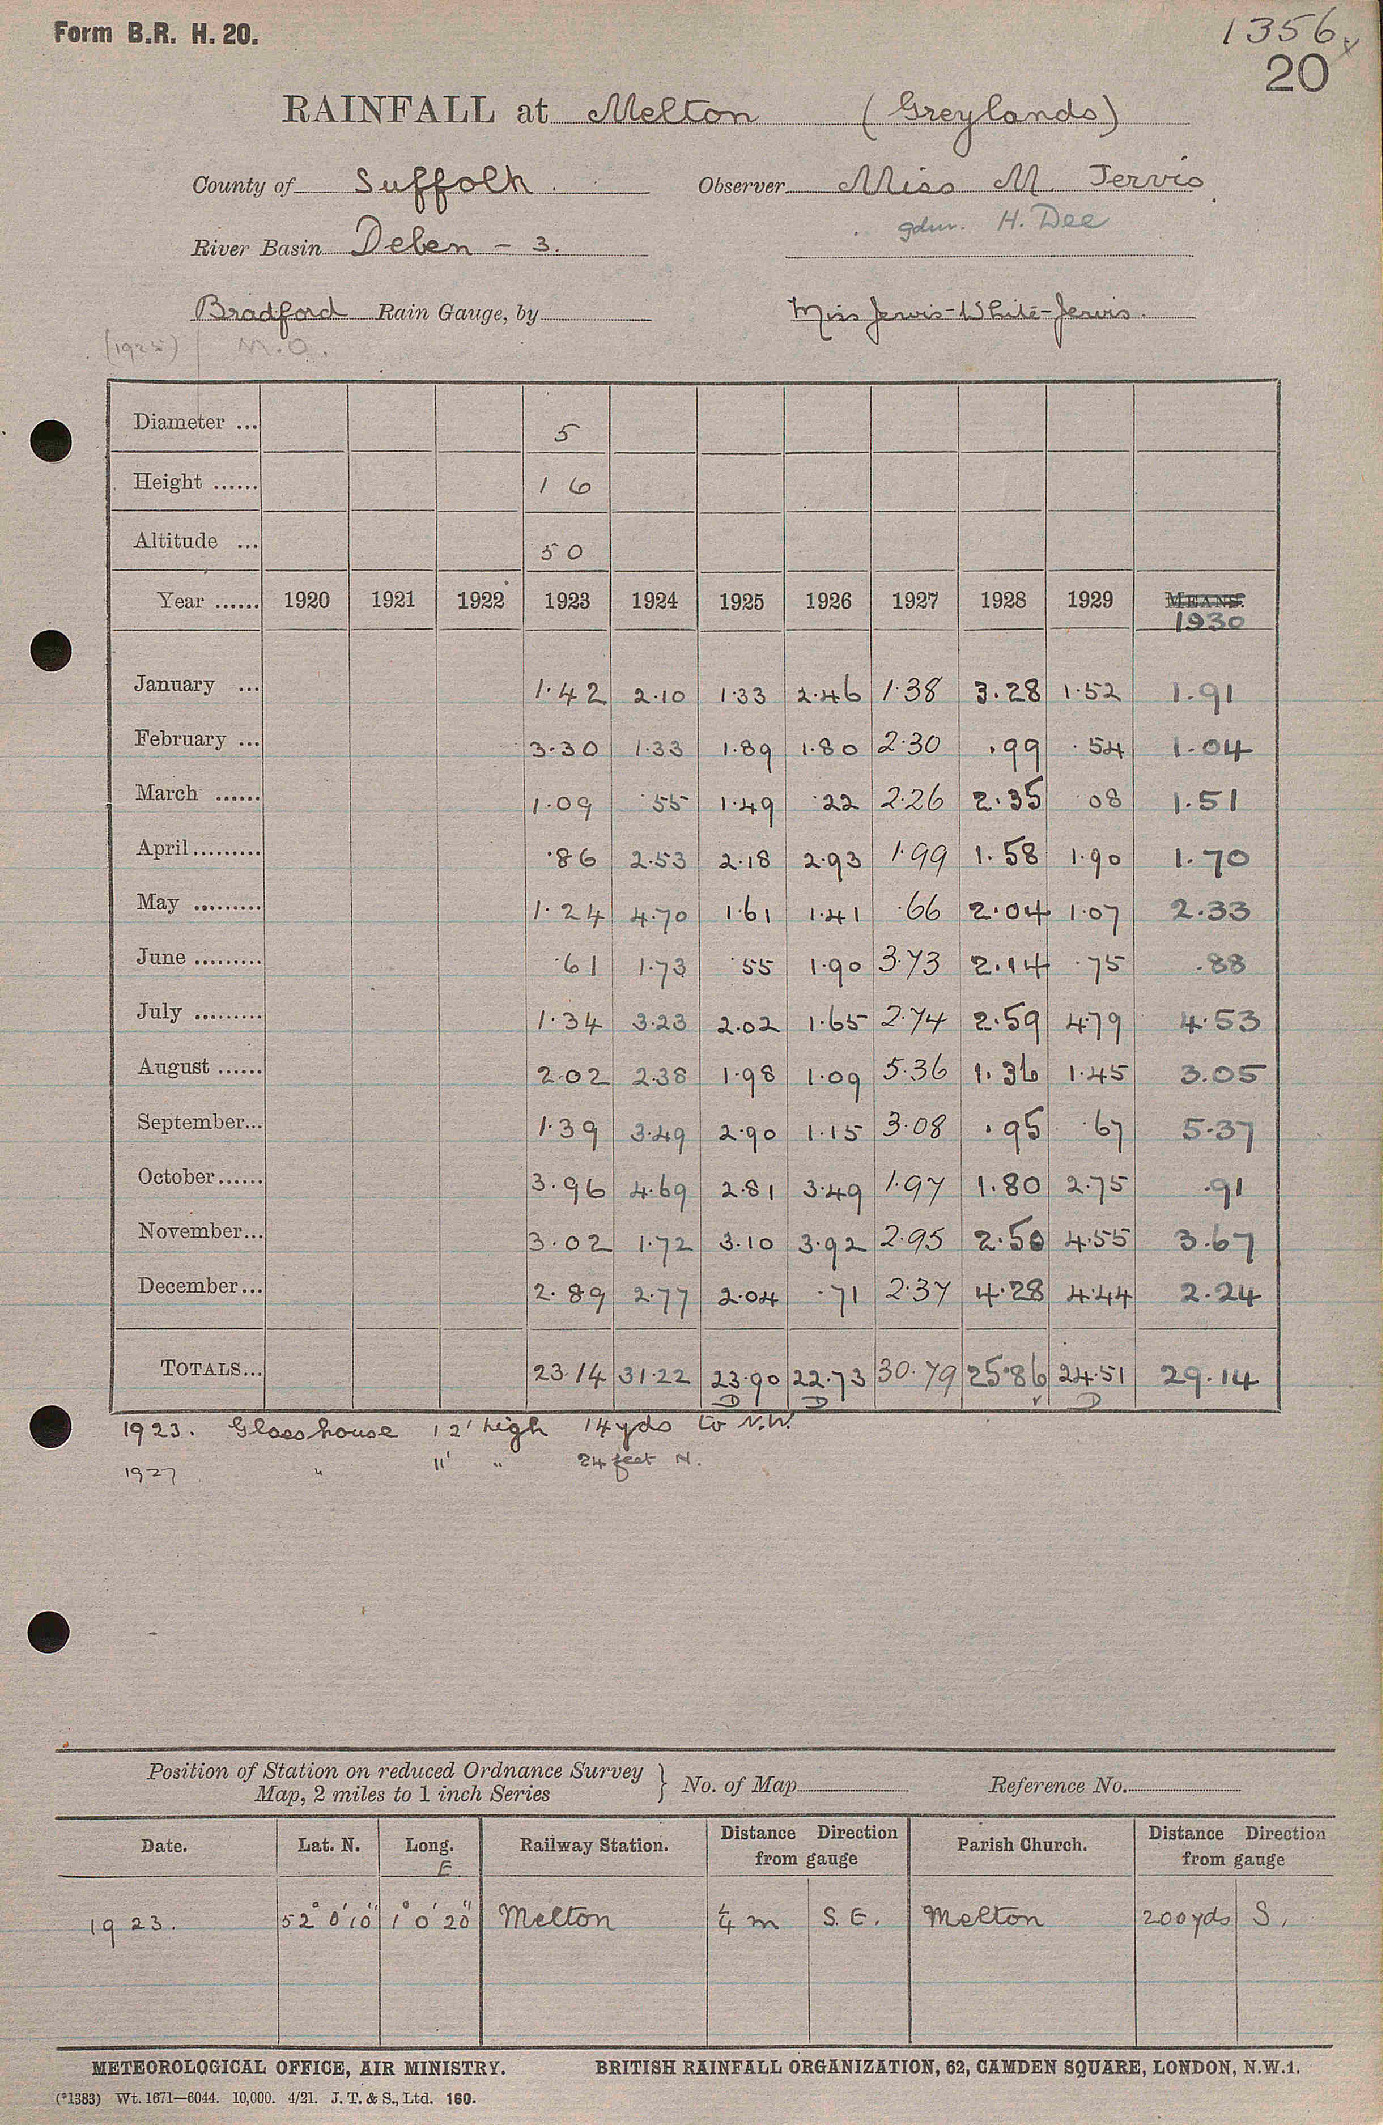 Form B.R. H. 20.
1356
20
RAINFALL at Melton (Greylands)
County of Suffolk Observer Miss M Jervis
gdnr. H. Dee
River Basin Deben - 3.
Bradford Rain Gauge, by Miss Jervis-White-Jervis.
(1925) M.O.
Diameter ... 5
Height ...... 1 6
Altitude ... 50
Year ...... 1920 1921 1922 1923 1924 1925 1926 1927 1928 1929 MEANS.
1930
January ... 1.42 2.10 1.33 2.46 1.38 3.28 1.52 1.91
February ... 3.30 1.33 1.89 1.80 2.30 .99 .54 1.04
March ...... 1.09 .55 1.49 .22 2.26 2.35 08 1.51
April......... .86 2.53 2.18 2.93 1.99 1.58 1.90 1.70
May ......... 1.24 4.70 1.61 1.41 .66 2.04 1.07 2.33
June ......... .61 1.73 .55 1.90 3.73 2.14 .75 .88
July ......... 1.34 3.23 2.02 1.65 2.74 2.59 4.79 4.53
August ...... 2.02 2.38 1.98 1.09 5.36 1.36 1.45 3.05
September... 1.39 3.49 2.90 1.15 3.08 .95 .67 5.37
October...... 3.96 4.69 2.81 3.49 1.97 1.80 2.75 .91
November... 3.02 1.72 3.10 3.92 2.95 2.50 4.55 3.67
December... 2.89 2.77 2.04 .71 2.37 4.28 4.44 2.24
TOTALS... 23.14 31.22 23.90 22.73 30.79 25.86 24.51 29.14
D D D
1923. Glasshouse 12' high 14yds to N.W.
1927 " 11' " 24 feet N.
Position of Station on reduced Ordnance Survey
Map, 2 miles to 1 inch Series } No. of Map Reference No.
Date. Lat. N. Long. E Railway Station. Distance Direction from gauge Parish Church. Distance Direction from gauge
1923. 52° 6' 10" 1° 0' 20" Melton ¼ m S.E. Melton 200yds S.
METEOROLOGICAL OFFICE, AIR MINISTRY. BRITISH RAINFALL ORGANIZATION, 62, CAMDEN SQUARE, LONDON, N.W.1.
(*1383) Wt. 1671—6044. 10,000. 4/21. J. T. & S., Ltd. 160.